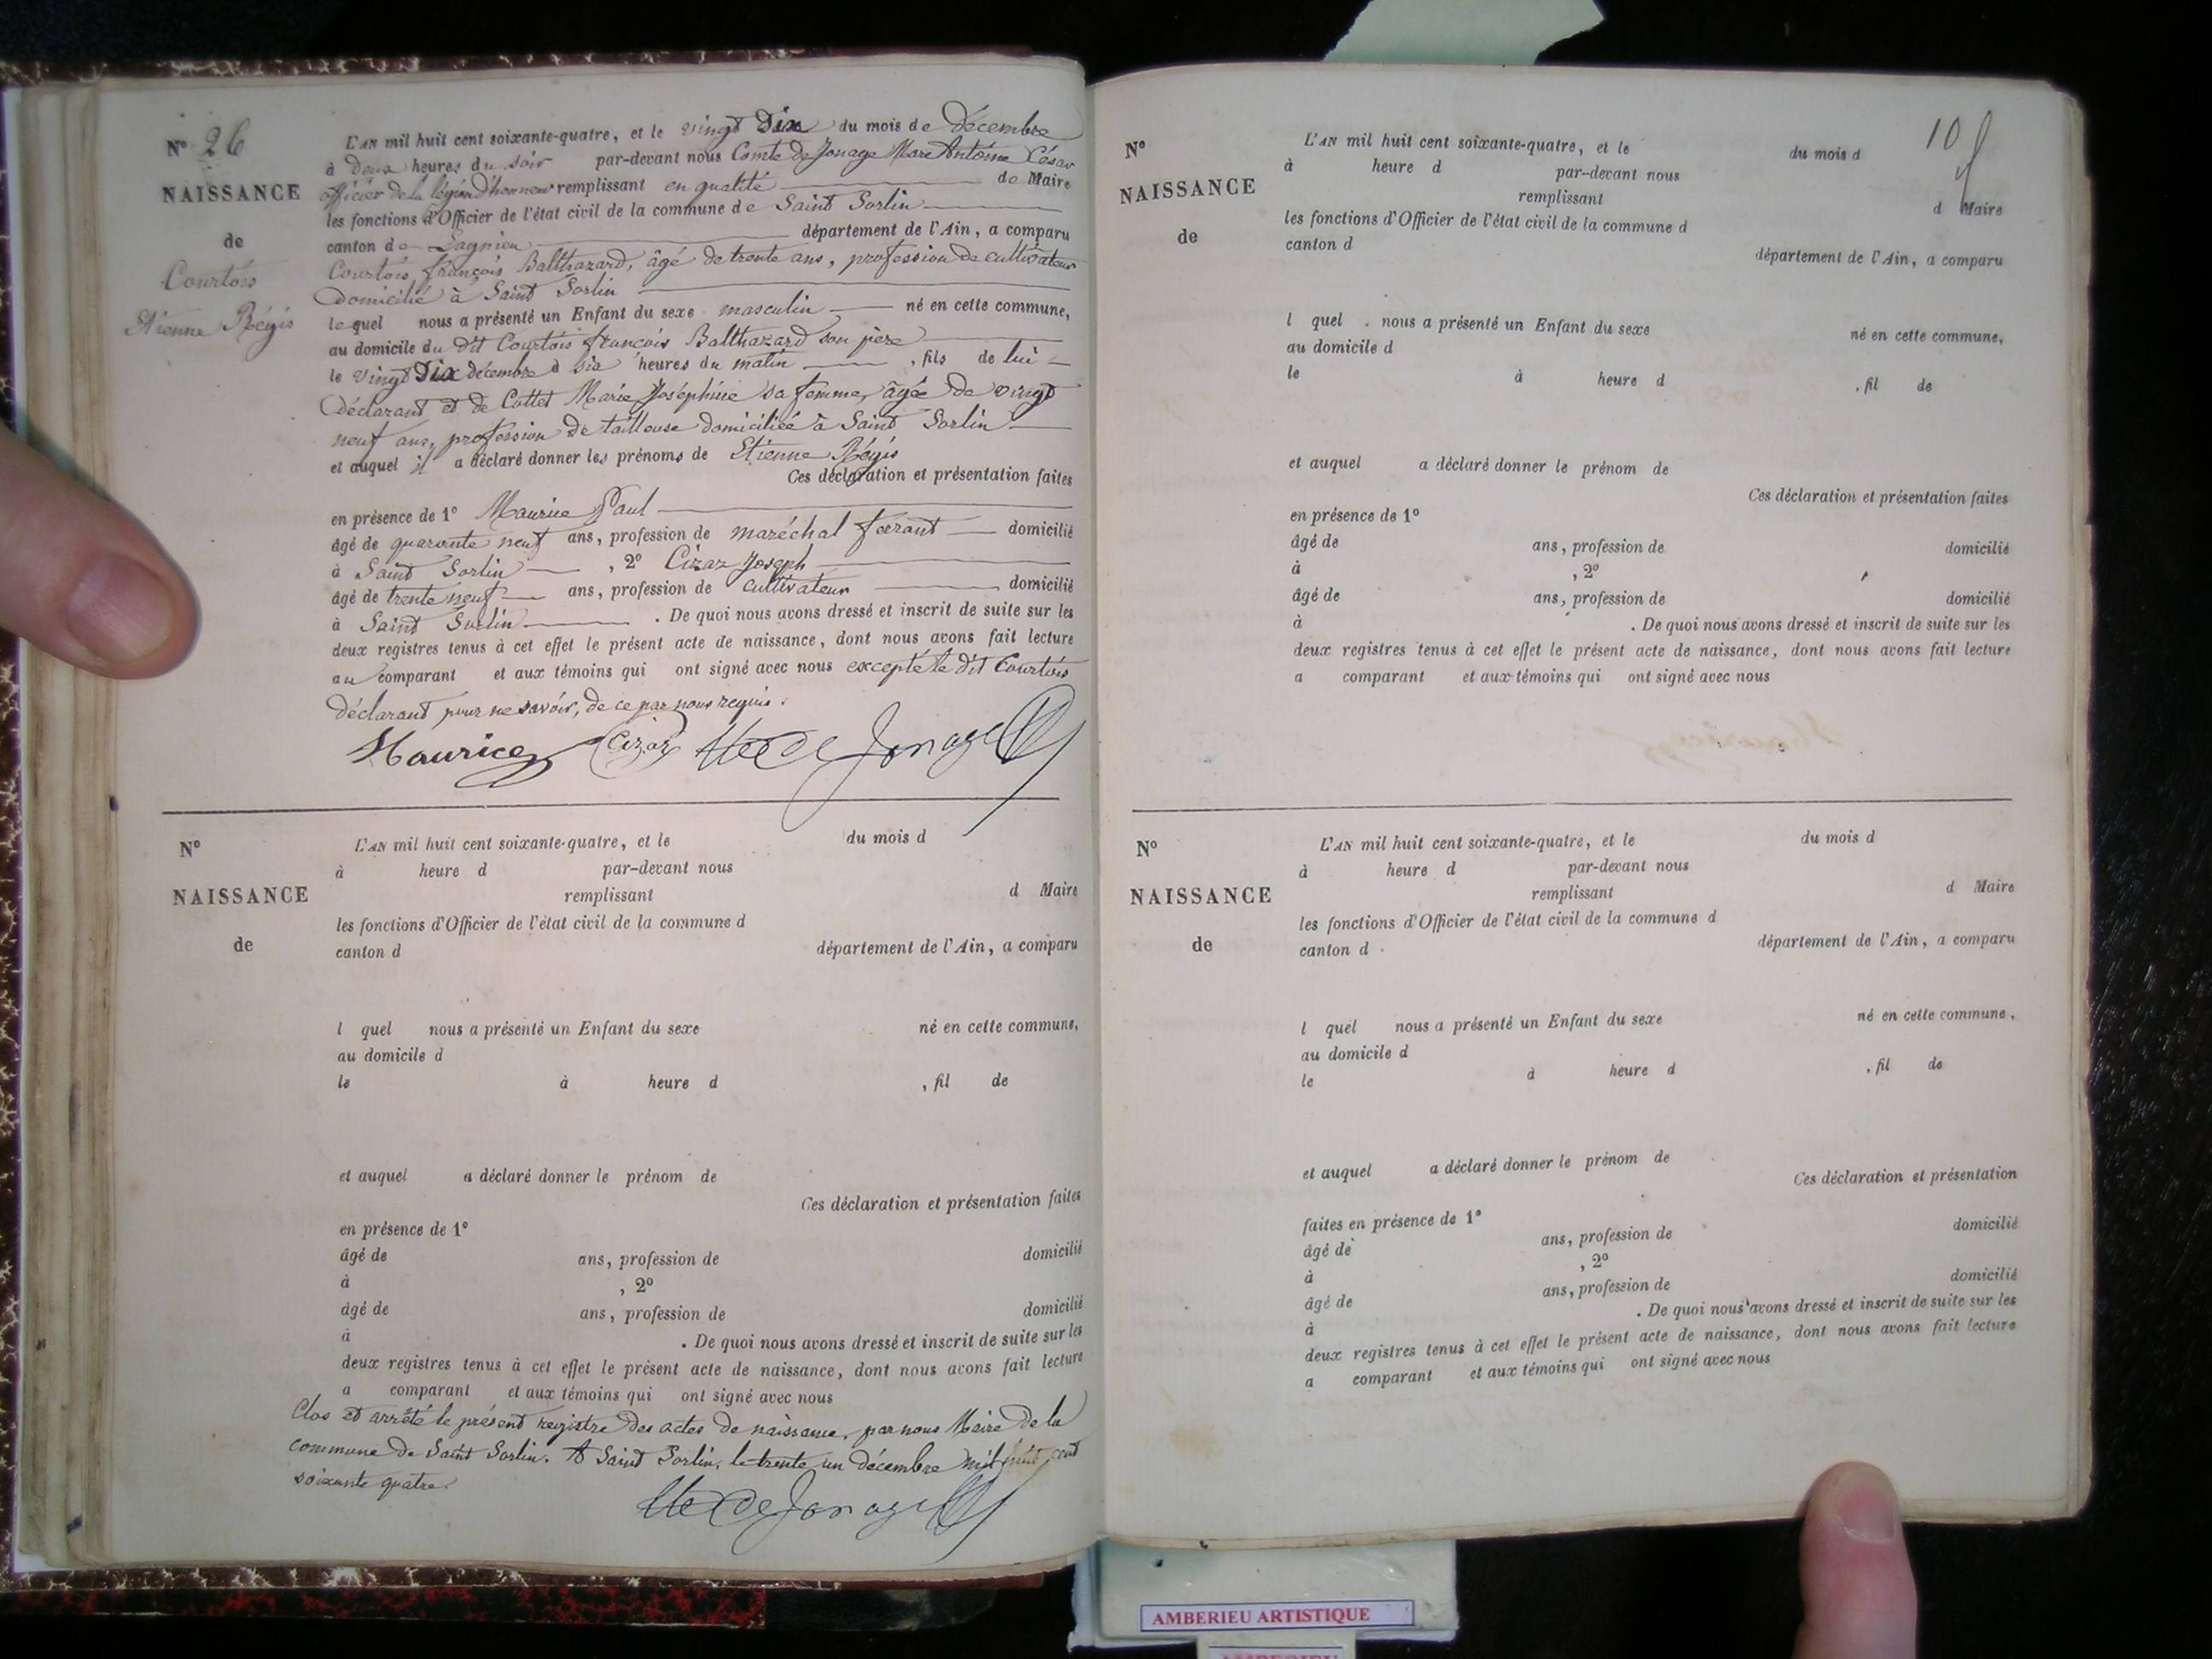 N° 26
NAISSANCE
de
Courtois
Etienne Régis
L'AN mil huit cent soixante-quatre, et le vingt Dix du mois de décembre
à deux heures du soir par-devant nous Comte de Jonage Marc Antoine César
officier de la légion d'honneur remplissant en qualité de Maire
les fonctions d'Officier de l'état civil de la commune de Saint Sorlin
canton de Lagnieu département de l'Ain, a comparu
Courtois françois Balthazard, âgé de trente ans, profession de cultivateur
domicilié à Saint Sorlin
lequel nous a présenté un Enfant du sexe masculin né en cette commune,
au domicile du dit Courtois françois Balthazard son père
le vingt Dix décembre à six heures du matin, fils de lui
déclarant et de Cottet Marie Joséphine sa femme, âgée de vingt
neuf ans, profession de tailleuse domiciliée à Saint Sorlin
et auquel il a déclaré donner les prénoms de Etienne Régis
Ces déclaration et présentation faites
en présence de 1° Maurice Paul
âgé de quarante neuf ans, profession de maréchal ferrant domicilié
à Saint Sorlin, 2° Cizar Joseph
âgé de trente neuf ans, profession de cultivateur domicilié
à Saint Sorlin. De quoi nous avons dressé et inscrit de suite sur les
deux registres tenus à cet effet le présent acte de naissance, dont nous avons fait lecture
au comparant et aux témoins qui ont signé avec nous excepté le dit Courtois
déclarant pour ne savoir, de ce par nous requis.
Maurice Cizar Cte De Jonage
N°
NAISSANCE
de
L'AN mil huit cent soixante-quatre, et le du mois d
à heure d par-devant nous
remplissant d Maire
les fonctions d'Officier de l'état civil de la commune d
canton d département de l'Ain, a comparu
l quel nous a présenté un Enfant du sexe né en cette commune,
au domicile d
le à heure d , fil de
et auquel a déclaré donner le prénom de
Ces déclaration et présentation faites
en présence de 1°
âgé de ans, profession de domicilié
à , 2°
âgé de ans, profession de domicilié
à . De quoi nous avons dressé et inscrit de suite sur les
deux registres tenus à cet effet le présent acte de naissance, dont nous avons fait lecture
a comparant et aux témoins qui ont signé avec nous
Clos et arrêté le présent registre des actes de naissance, par nous Maire de la
commune de Saint Sorlin. A Saint Sorlin, le trente un décembre mil huit cent
soixante quatre.
Cte De Jonage
10
N°
NAISSANCE
de
L'AN mil huit cent soixante-quatre, et le du mois d
à heure d par-devant nous
remplissant d Maire
les fonctions d'Officier de l'état civil de la commune d
canton d département de l'Ain, a comparu
l quel nous a présenté un Enfant du sexe né en cette commune,
au domicile d
le à heure d , fil de
et auquel a déclaré donner le prénom de
Ces déclaration et présentation faites
en présence de 1°
âgé de ans, profession de domicilié
à , 2°
âgé de ans, profession de domicilié
à . De quoi nous avons dressé et inscrit de suite sur les
deux registres tenus à cet effet le présent acte de naissance, dont nous avons fait lecture
a comparant et aux témoins qui ont signé avec nous
N°
NAISSANCE
de
L'AN mil huit cent soixante-quatre, et le du mois d
à heure d par-devant nous
remplissant d Maire
les fonctions d'Officier de l'état civil de la commune d
canton d département de l'Ain, a comparu
l quel nous a présenté un Enfant du sexe né en cette commune,
au domicile d
le à heure d , fil de
et auquel a déclaré donner le prénom de
Ces déclaration et présentation
faites en présence de 1°
âgé de ans, profession de domicilié
à , 2°
âgé de ans, profession de domicilié
à . De quoi nous avons dressé et inscrit de suite sur les
deux registres tenus à cet effet le présent acte de naissance, dont nous avons fait lecture
a comparant et aux témoins qui ont signé avec nous
AMBERIEU ARTISTIQUE
AMBERIEU